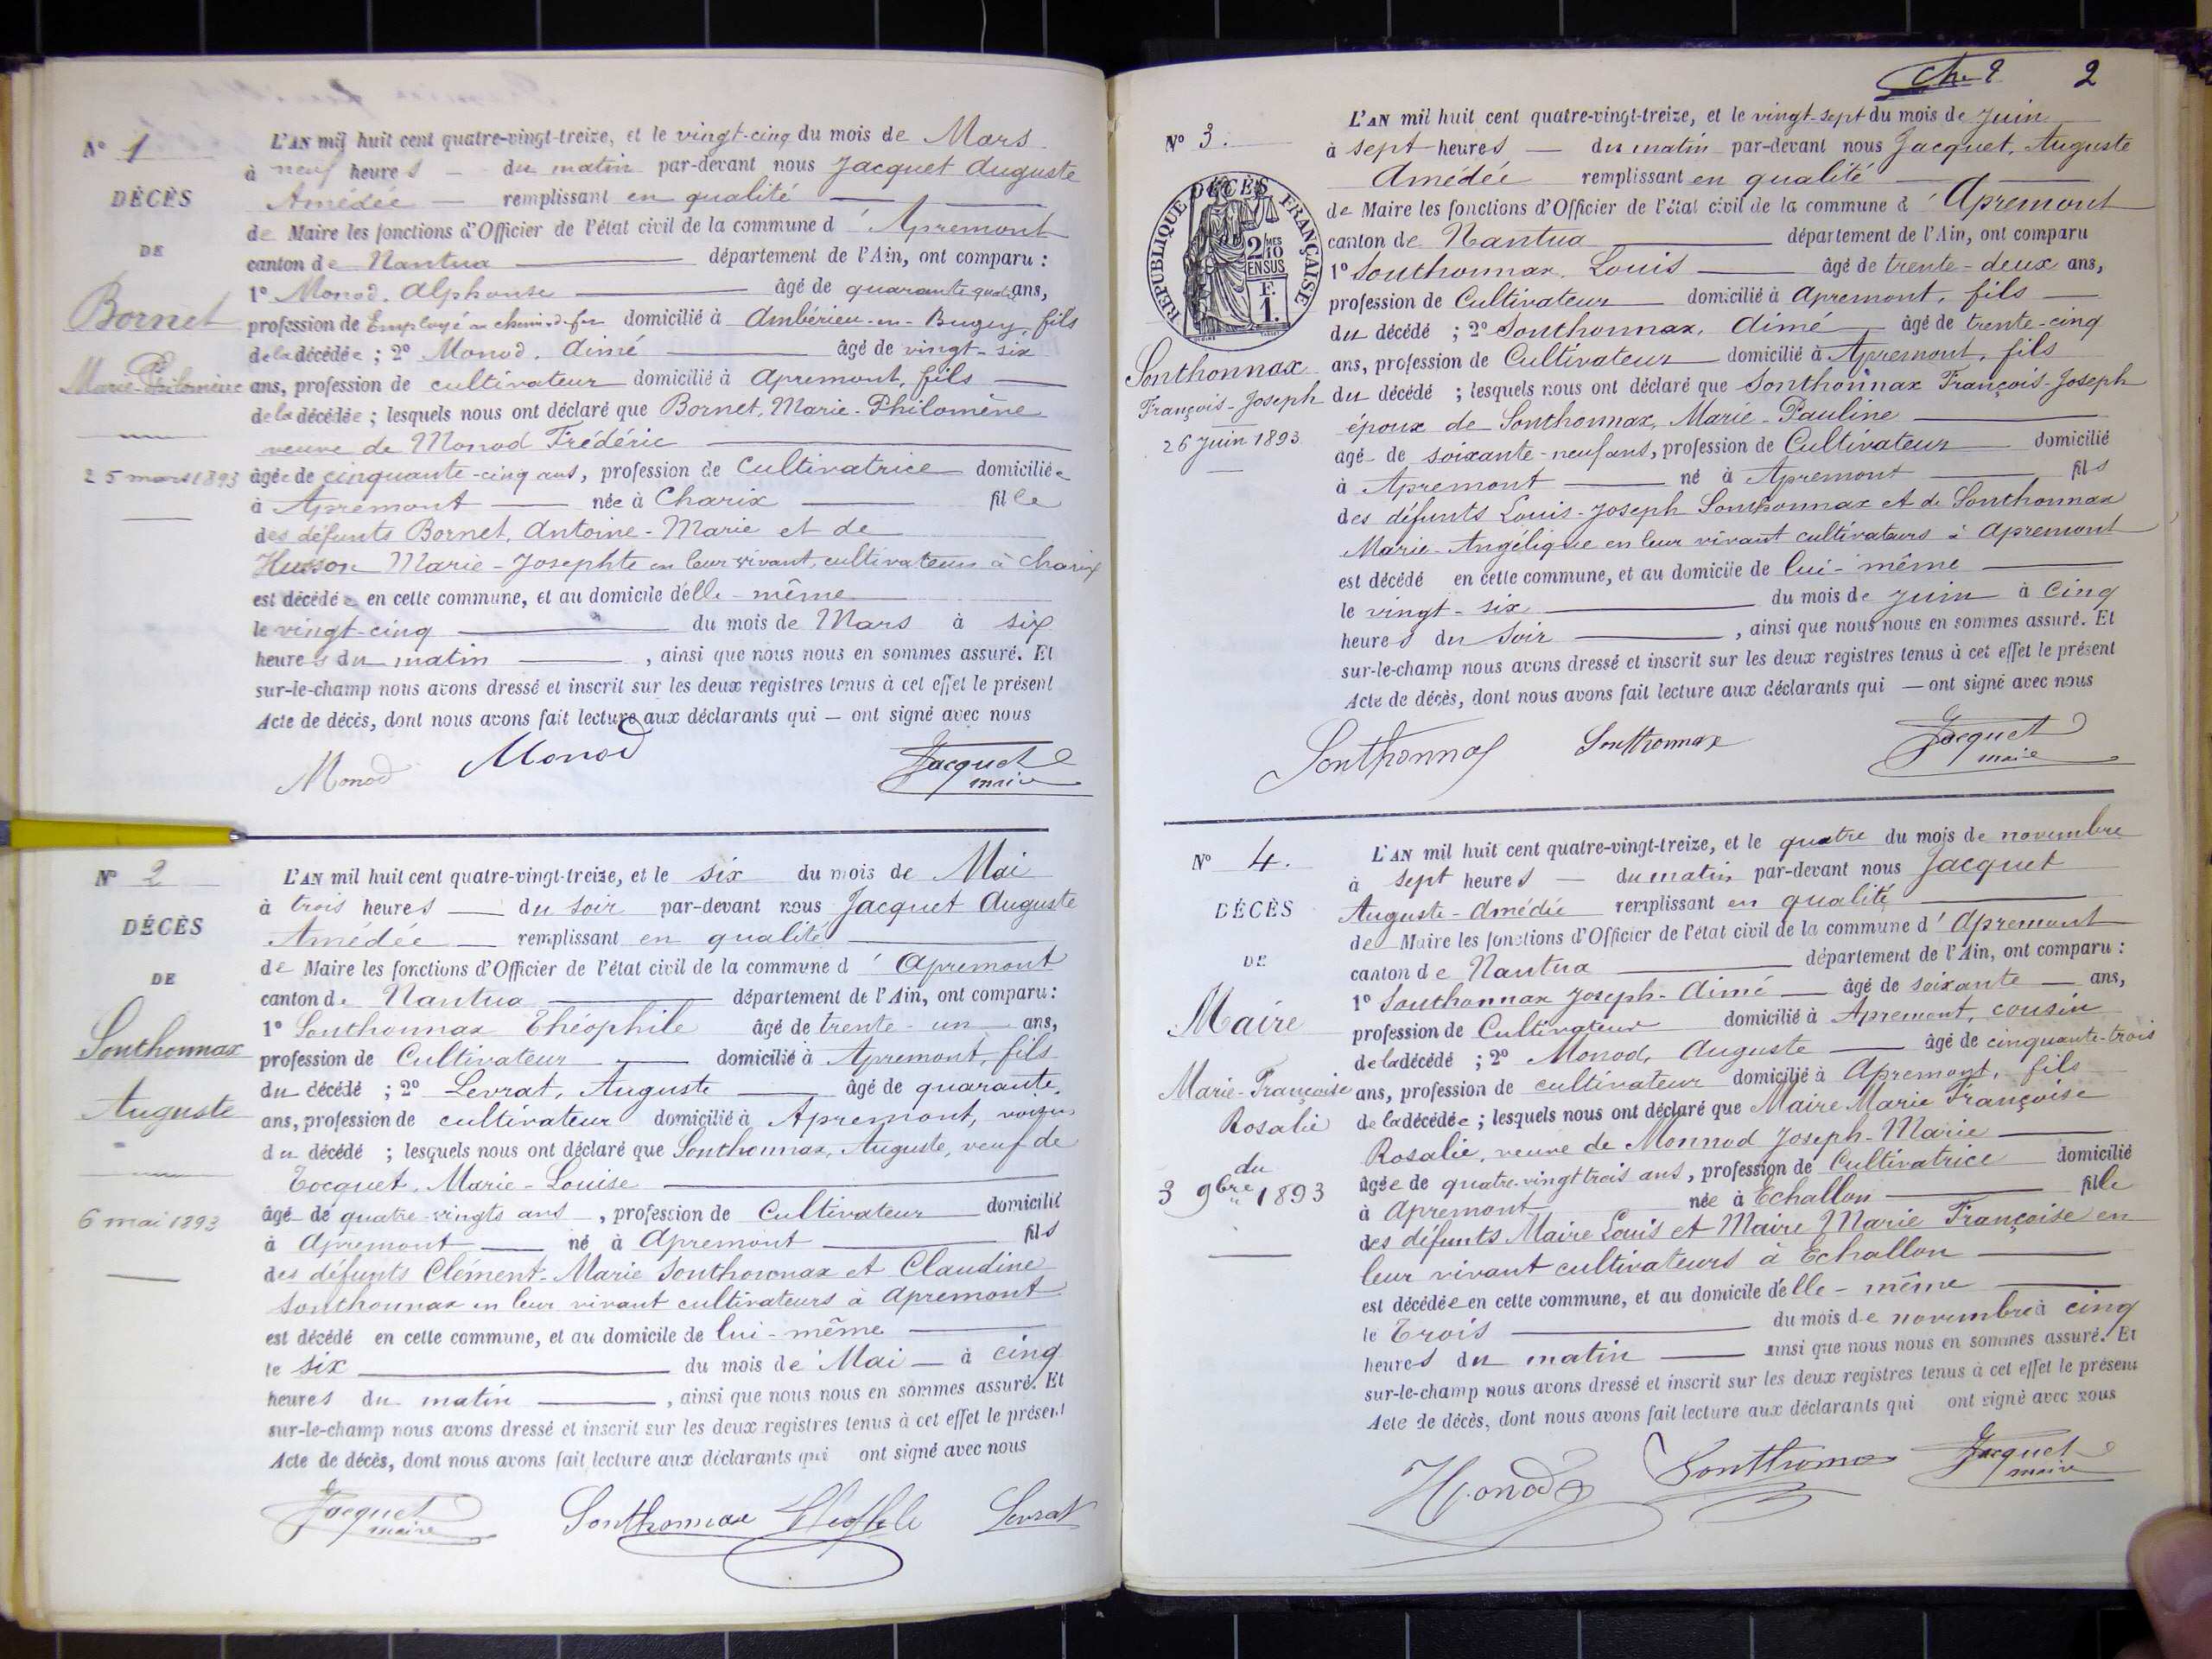 N° 1
DÉCÈS
DE
Bornet
Marie-Philomène
25 mars 1893
L'AN mil huit cent quatre-vingt-treize, et le vingt-cinq du mois de Mars
à neuf heures — du matin par-devant nous Jacquet Auguste
Amédée — remplissant en qualité —
de Maire les fonctions d'Officier de l'état civil de la commune d'Apremont
canton de Nantua — département de l'Ain, ont comparu :
1° Monod, Alphonse — âgé de quarante ans,
profession de Employé au chemin de fer domicilié à Ambérieu-en-Bugey, fils
de la décédée ; 2° Monod, Aimé — âgé de vingt-six
ans, profession de cultivateur domicilié à Apremont, fils —
de la décédée ; lesquels nous ont déclaré que Bornet, Marie-Philomène
veuve de Monod Frédéric —
âgée de cinquante-cinq ans, profession de Cultivatrice domiciliée
à Apremont — née à Charix — fille
des défunts Bornet, Antoine-Marie et de
Husson Marie-Josephte en leur vivant, cultivateurs à Charix
est décédée en cette commune, et au domicile d'elle-même
le vingt-cinq — du mois de Mars à six
heures du matin — , ainsi que nous nous en sommes assuré. Et
sur-le-champ nous avons dressé et inscrit sur les deux registres tenus à cet effet le présent
Acte de décès, dont nous avons fait lecture aux déclarants qui — ont signé avec nous
Monod Monod Jacquet
maire
N° 2
DÉCÈS
DE
Sonthonnax
Auguste
6 mai 1893
L'AN mil huit cent quatre-vingt-treize, et le six du mois de Mai
à trois heures — du soir par-devant nous Jacquet Auguste
Amédée — remplissant en qualité —
de Maire les fonctions d'Officier de l'état civil de la commune d'Apremont
canton de Nantua — département de l'Ain, ont comparu :
1° Sonthonnax Théophile âgé de trente-un ans,
profession de Cultivateur — domicilié à Apremont, fils
du décédé ; 2° Levrat, Auguste — âgé de quarante
ans, profession de cultivateur domicilié à Apremont, voisin
du décédé ; lesquels nous ont déclaré que Sonthonnax, Auguste, veuf de
Tocquet, Marie-Louise —
âgé de quatre-vingts ans, profession de Cultivateur domicilié
à Apremont — né à Apremont — fils
des défunts Clément-Marie Sonthonnax et Claudine
Sonthonnax en leur vivant cultivateurs à Apremont
est décédé en cette commune, et au domicile de lui-même —
le six — du mois de Mai — à cinq
heures du matin — , ainsi que nous nous en sommes assuré. Et
sur-le-champ nous avons dressé et inscrit sur les deux registres tenus à cet effet le présent
Acte de décès, dont nous avons fait lecture aux déclarants qui ont signé avec nous
Jacquet Sonthonnax Théophile Levrat
maire
2
N° 3.
RÉPUBLIQUE FRANÇAISE
DÉCÈS
2/10 MES
EN SUS
F.
1.
Sonthonnax
François-Joseph
26 Juin 1893
L'AN mil huit cent quatre-vingt-treize, et le vingt-sept du mois de Juin
à sept heures — du matin par-devant nous Jacquet, Auguste
Amédée remplissant en qualité —
de Maire les fonctions d'Officier de l'état civil de la commune d'Apremont
canton de Nantua — département de l'Ain, ont comparu
1° Sonthonnax, Louis — âgé de trente-deux ans,
profession de Cultivateur — domicilié à Apremont, fils —
du décédé ; 2° Sonthonnax, Aimé âgé de trente-cinq
ans, profession de Cultivateur domicilié à Apremont, fils
du décédé ; lesquels nous ont déclaré que Sonthonnax François-Joseph
époux de Sonthonnax, Marie-Pauline —
âgé de soixante-neuf ans, profession de Cultivateur domicilié
à Apremont — né à Apremont — fils
des défunts Louis-Joseph Sonthonnax et de Sonthonnax
Marie-Angélique en leur vivant cultivateurs à Apremont
est décédé en cette commune, et au domicile de lui-même —
le vingt-six — du mois de Juin à cinq
heures du soir — , ainsi que nous nous en sommes assuré. Et
sur-le-champ nous avons dressé et inscrit sur les deux registres tenus à cet effet le présent
Acte de décès, dont nous avons fait lecture aux déclarants qui — ont signé avec nous
Sonthonnax Sonthonnax Jacquet
maire
N° 4.
DÉCÈS
DE
Maire
Marie-Françoise
Rosalie
du
3 9bre 1893
L'AN mil huit cent quatre-vingt-treize, et le quatre du mois de novembre
à sept heures — du matin par-devant nous Jacquet
Auguste-Amédée remplissant en qualité —
de Maire les fonctions d'Officier de l'état civil de la commune d'Apremont
canton de Nantua — département de l'Ain, ont comparu :
1° Sonthonnax Joseph-Aimé — âgé de soixante — ans,
profession de Cultivateur domicilié à Apremont, cousin
de la décédé ; 2° Monod, Auguste — âgé de cinquante-trois
ans, profession de cultivateur domicilié à Apremont, fils
de la décédée ; lesquels nous ont déclaré que Maire Marie Françoise
Rosalie, veuve de Monnod Joseph-Marie —
âgée de quatre-vingt trois ans, profession de Cultivatrice domicilié
à Apremont née à Echallon — fille
des défunts Maire Louis et Maire Marie Françoise en
leur vivant cultivateurs à Echallon —
est décédée en cette commune, et au domicile d'elle-même —
le Trois — du mois de novembre à cinq
heures du matin — ainsi que nous nous en sommes assuré. Et
sur-le-champ nous avons dressé et inscrit sur les deux registres tenus à cet effet le présent
Acte de décès, dont nous avons fait lecture aux déclarants qui ont signé avec nous
Monod Sonthonnax Jacquet
maire